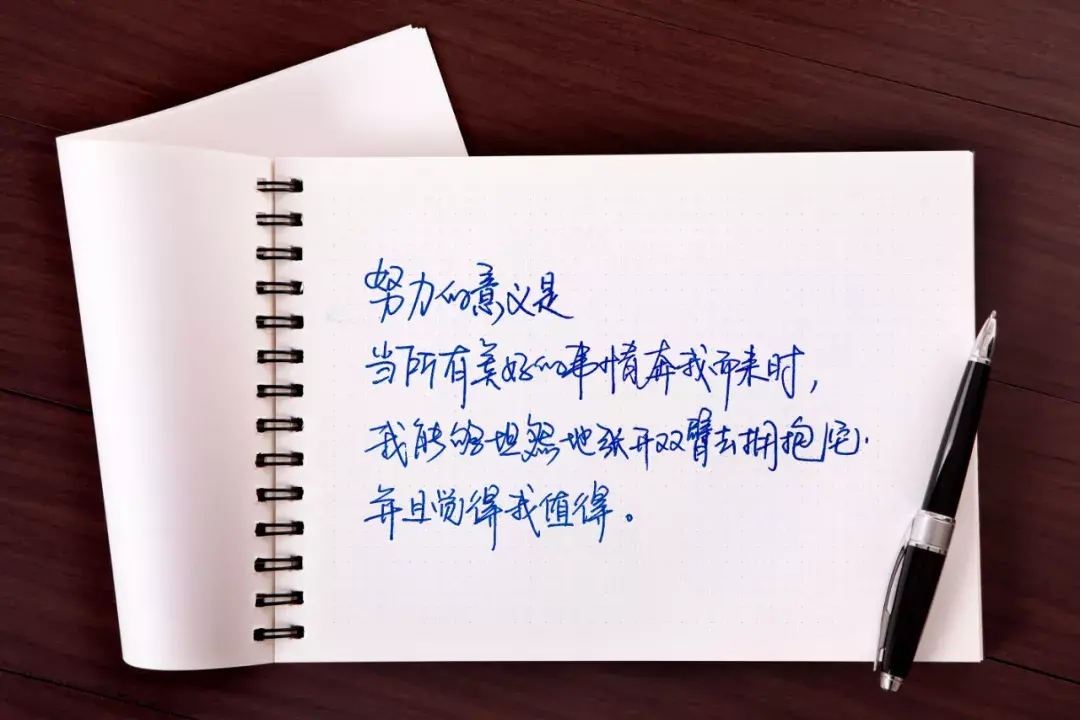 努力的意义是
当所有美好的事情奔我而来时，
我能够坦然地张开双臂去拥抱它.
并且觉得我值得。